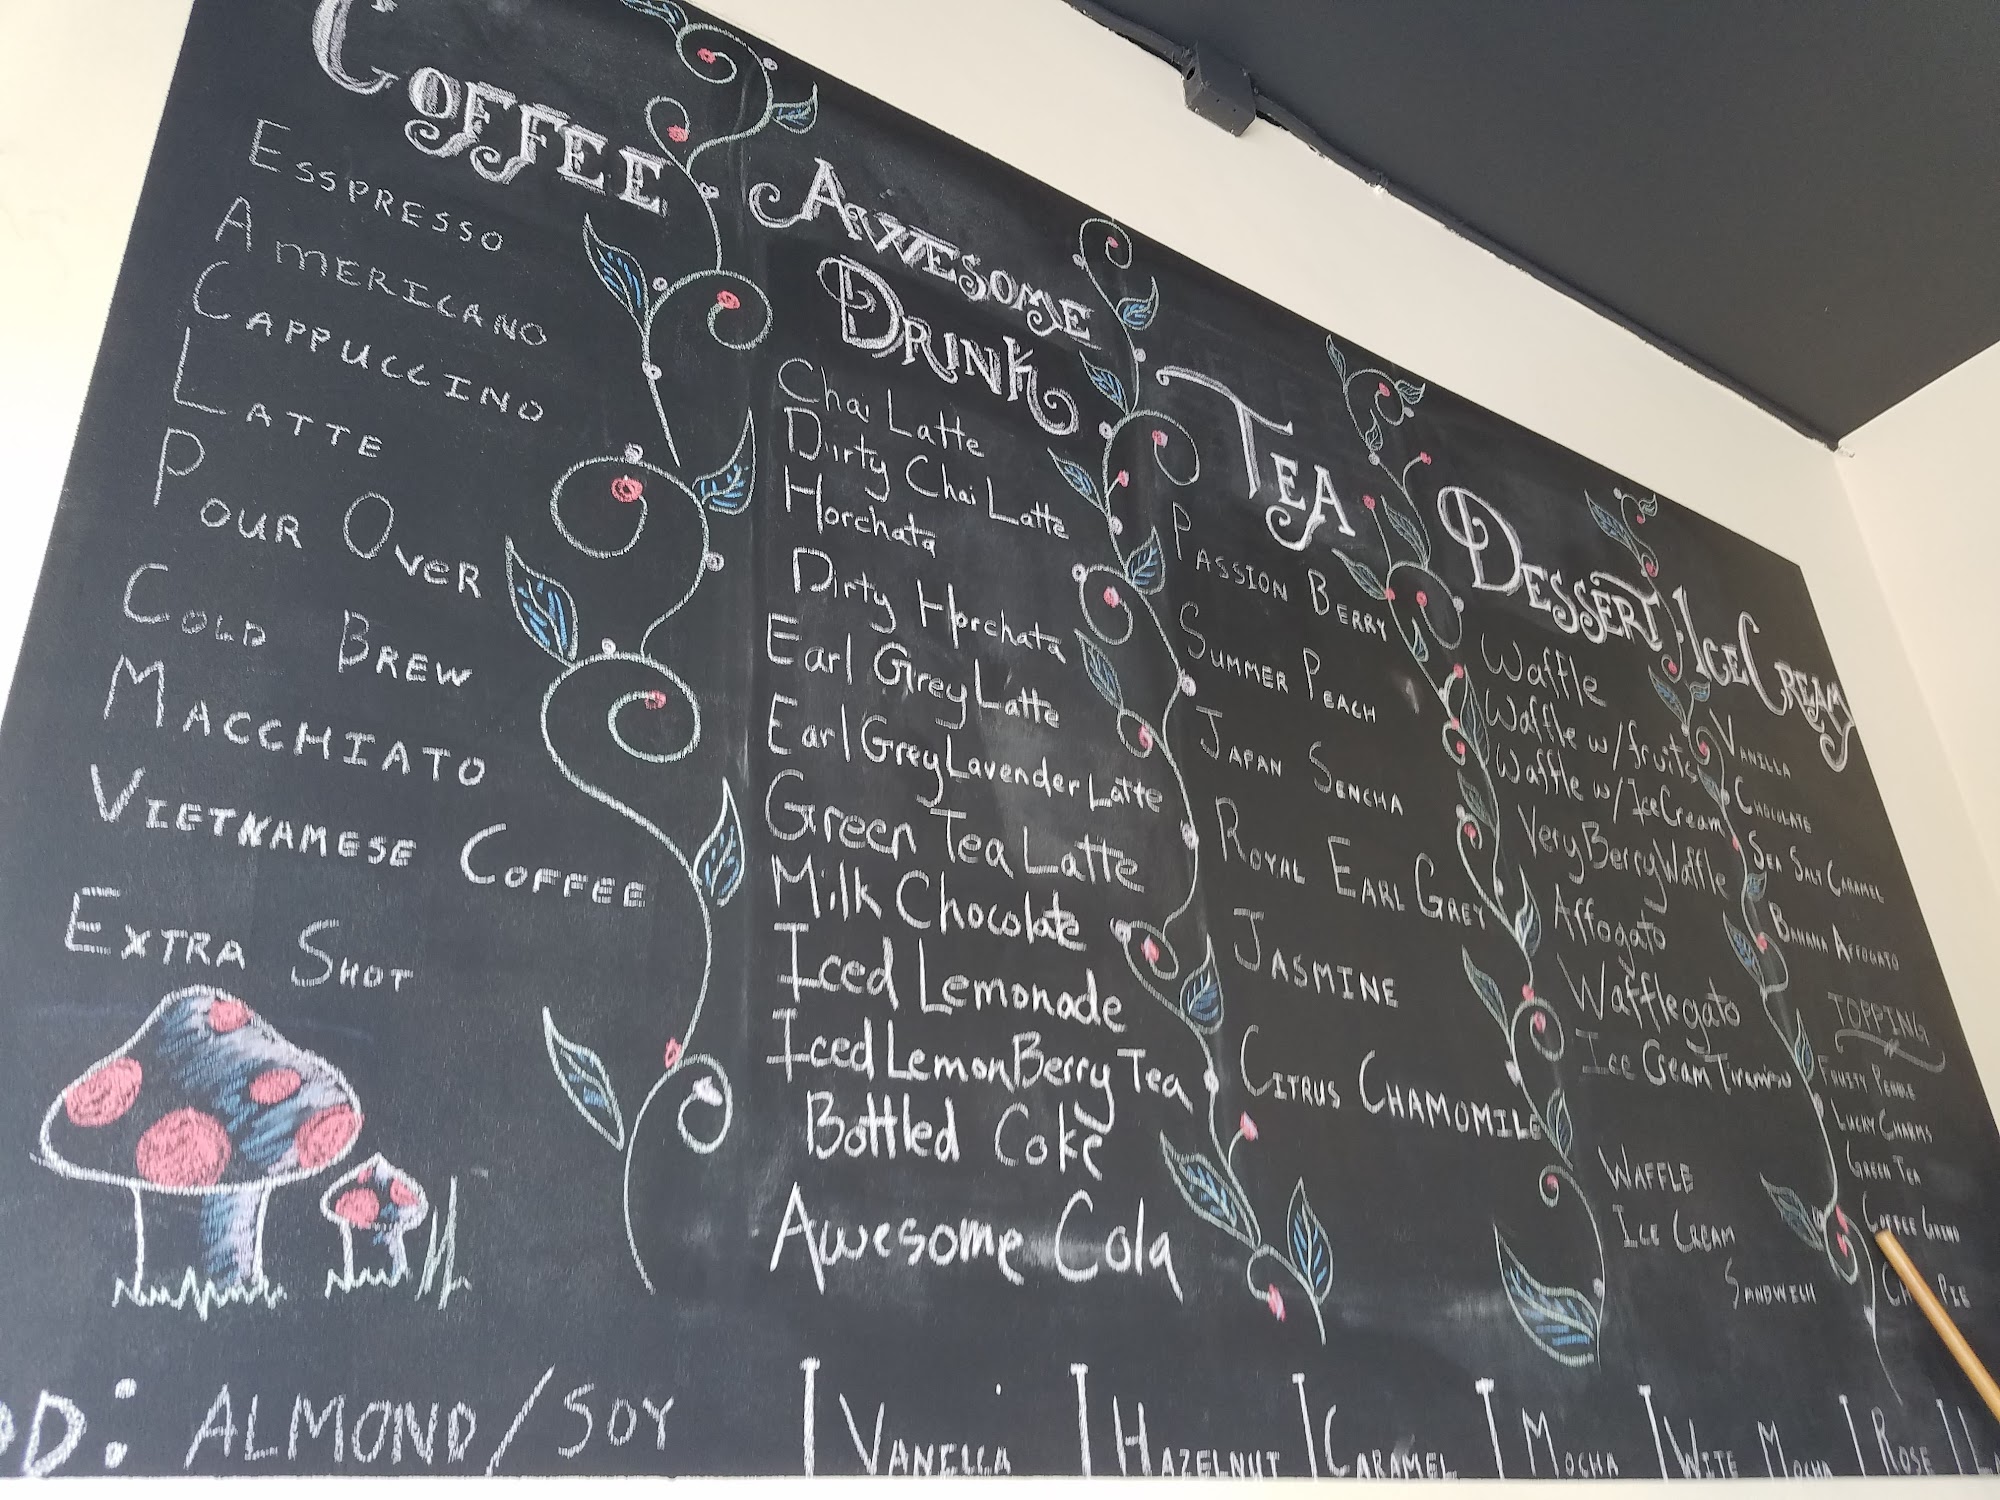 COFFEE
ESSPRESSO
AMERICANO
CAPPUCCINO
LATTE
POUR OVER
COLD BREW
MACCHIATO
VIETNAMESE COFFEE
EXTRA SHOT
AWESOME
DRINK
Chai Latte
Dirty Chai Latte
Horchata
Dirty Horchata
Earl Grey Latte
Earl Grey Lavender Latte
Green Tea Latte
Milk Chocolate
Iced Lemonade
Iced Lemon Berry Tea
Bottled Coke
Awesome Cola
TEA
PASSION BERRY
SUMMER PEACH
JAPAN SENCHA
ROYAL EARL GREY
JASMINE
CITRUS CHAMOMILE
DESSERT
Waffle
Waffle w/fruits
Waffle w/IceCream
Very Berry Waffle
Affogato
Wafflegato
Ice Cream Tiramisu
WAFFLE
ICE CREAM
SANDWICH
ICE CREAM
VANILLA
CHOCOLATE
SEA SALT CARAMEL
BANANA AFFOGATO
TOPPING
FRUITY PEBBLE
LUCKY CHARMS
GREEN TEA
COFFEE GRIND
PIE
DD: ALMOND/SOY | VANILLA | HAZELNUT | CARAMEL | MOCHA | WITE MOCHA | ROSE |